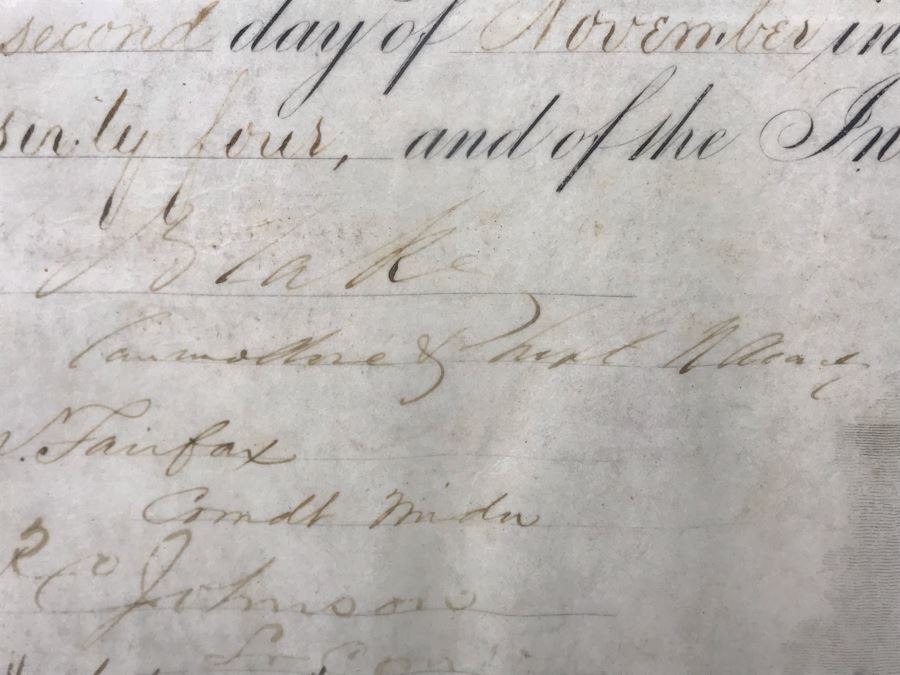 second day of November in
sixty four, and of the In
Blake
Commodore & Supt N Acad
S. Fairfax
Comdt Midn
Johnson